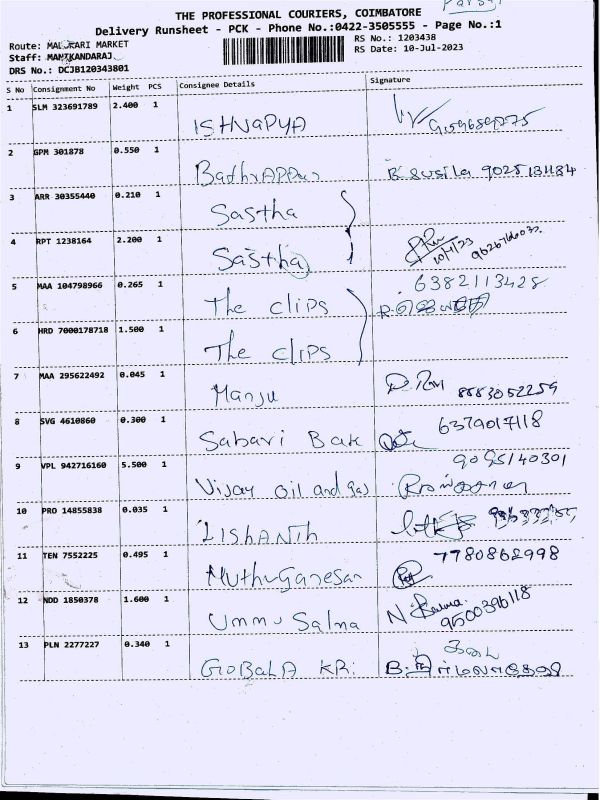 THE PROFESSIONAL COURIERS, COIMBATORE
Delivery Runsheet - PCK - Phone No.:0422-3505555 - Page No.:1
Route: MARKET
RS No.: 1203438
Staff: MANIKANDARAJ
RS Date: 10-Jul-2023
DRS No.: DCJB120343801
S No Consignment No Weight PCS Consignee Details Signature
1 SLM 323691789 2.400 1
2 GPM 301878 0.550 1 K Susila
3 ARR 30355440 0.210 1 Sastha
4 RPT 1238164 2.200 1 Sastha
5 MAA 104798966 0.265 1 The clips 6382113428
6 HRD 7000178718 1.500 1 The clips
7 MAA 295622492 0.045 1 Manju 8883052259
8 SVG 4610860 0.300 1 Sabari Bak 6379017118
9 VPL 942716160 5.500 1 Vijay oil and gas
10 PRO 14855838 0.035 1 LISHANTH
11 TEN 7552225 0.495 1 Muthu Ganesan 7780862998
12 NDD 1850378 1.600 1 Ummu Salma
13 PLN 2277227 0.340 1 GOBALA KRI